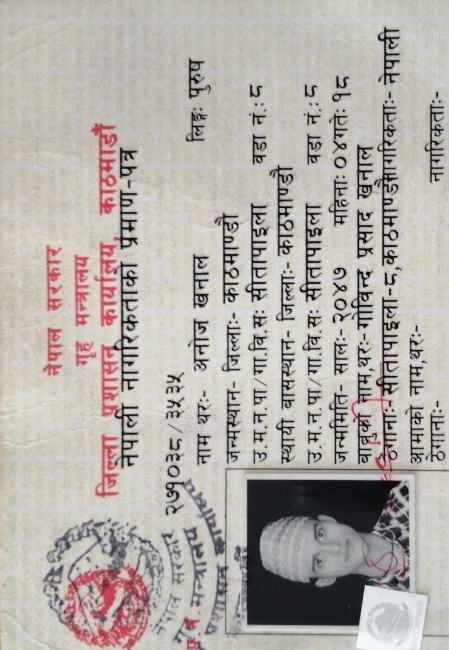 नेपाल सरकार
गृह मन्त्रालय
जिल्ला प्रशासन कार्यालय, काठमाडौं
नेपाली नागरिकताको प्रमाण-पत्र
२७१०३८/३५३५
नाम थर:- अनोज खनाल लिङ्ग: पुरुष
जन्मस्थान- जिल्ला:- काठमाण्डौ
उ.म.न.पा/गा.वि.स: सीतापाइला वडा नं.: ८
स्थायी बासस्थान- जिल्ला:- काठमाण्डौ
उ.म.न.पा/गा.वि.स: सीतापाइला वडा नं.: ८
जन्ममिति- साल:- २०४७ महिना: ०४ गते: १८
बाबुको नाम,थर:- गोविन्द प्रसाद खनाल
ठेगाना:- सीतापाइला-८,काठमाण्डौ नागरिकता:- नेपाली
आमाको नाम,थर:-
ठेगाना:- नागरिकता:-
नेपाल सरकार
गृह मन्त्रालय
प्रशासन कार्यालय